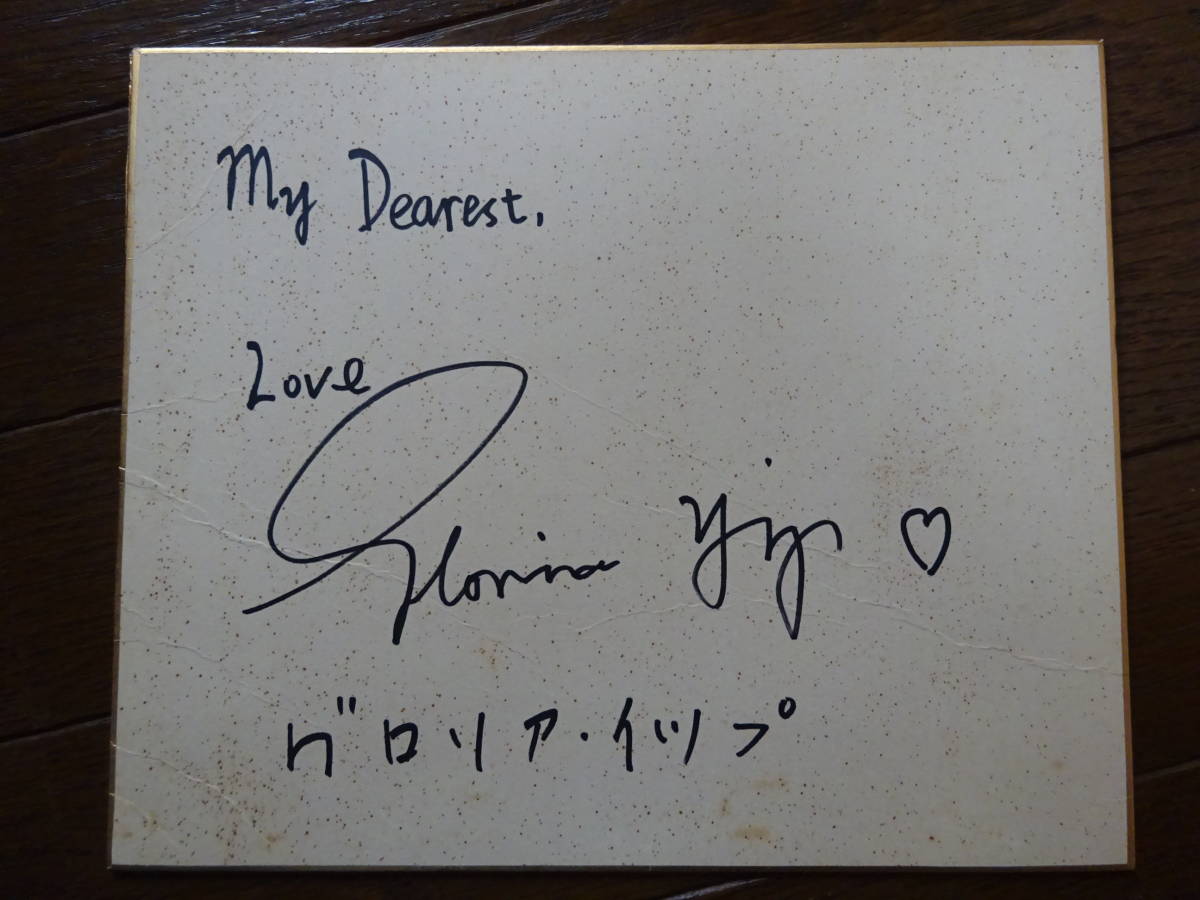 My Dearest,
Love
Gloria Yip ♡
グロリア・イップ